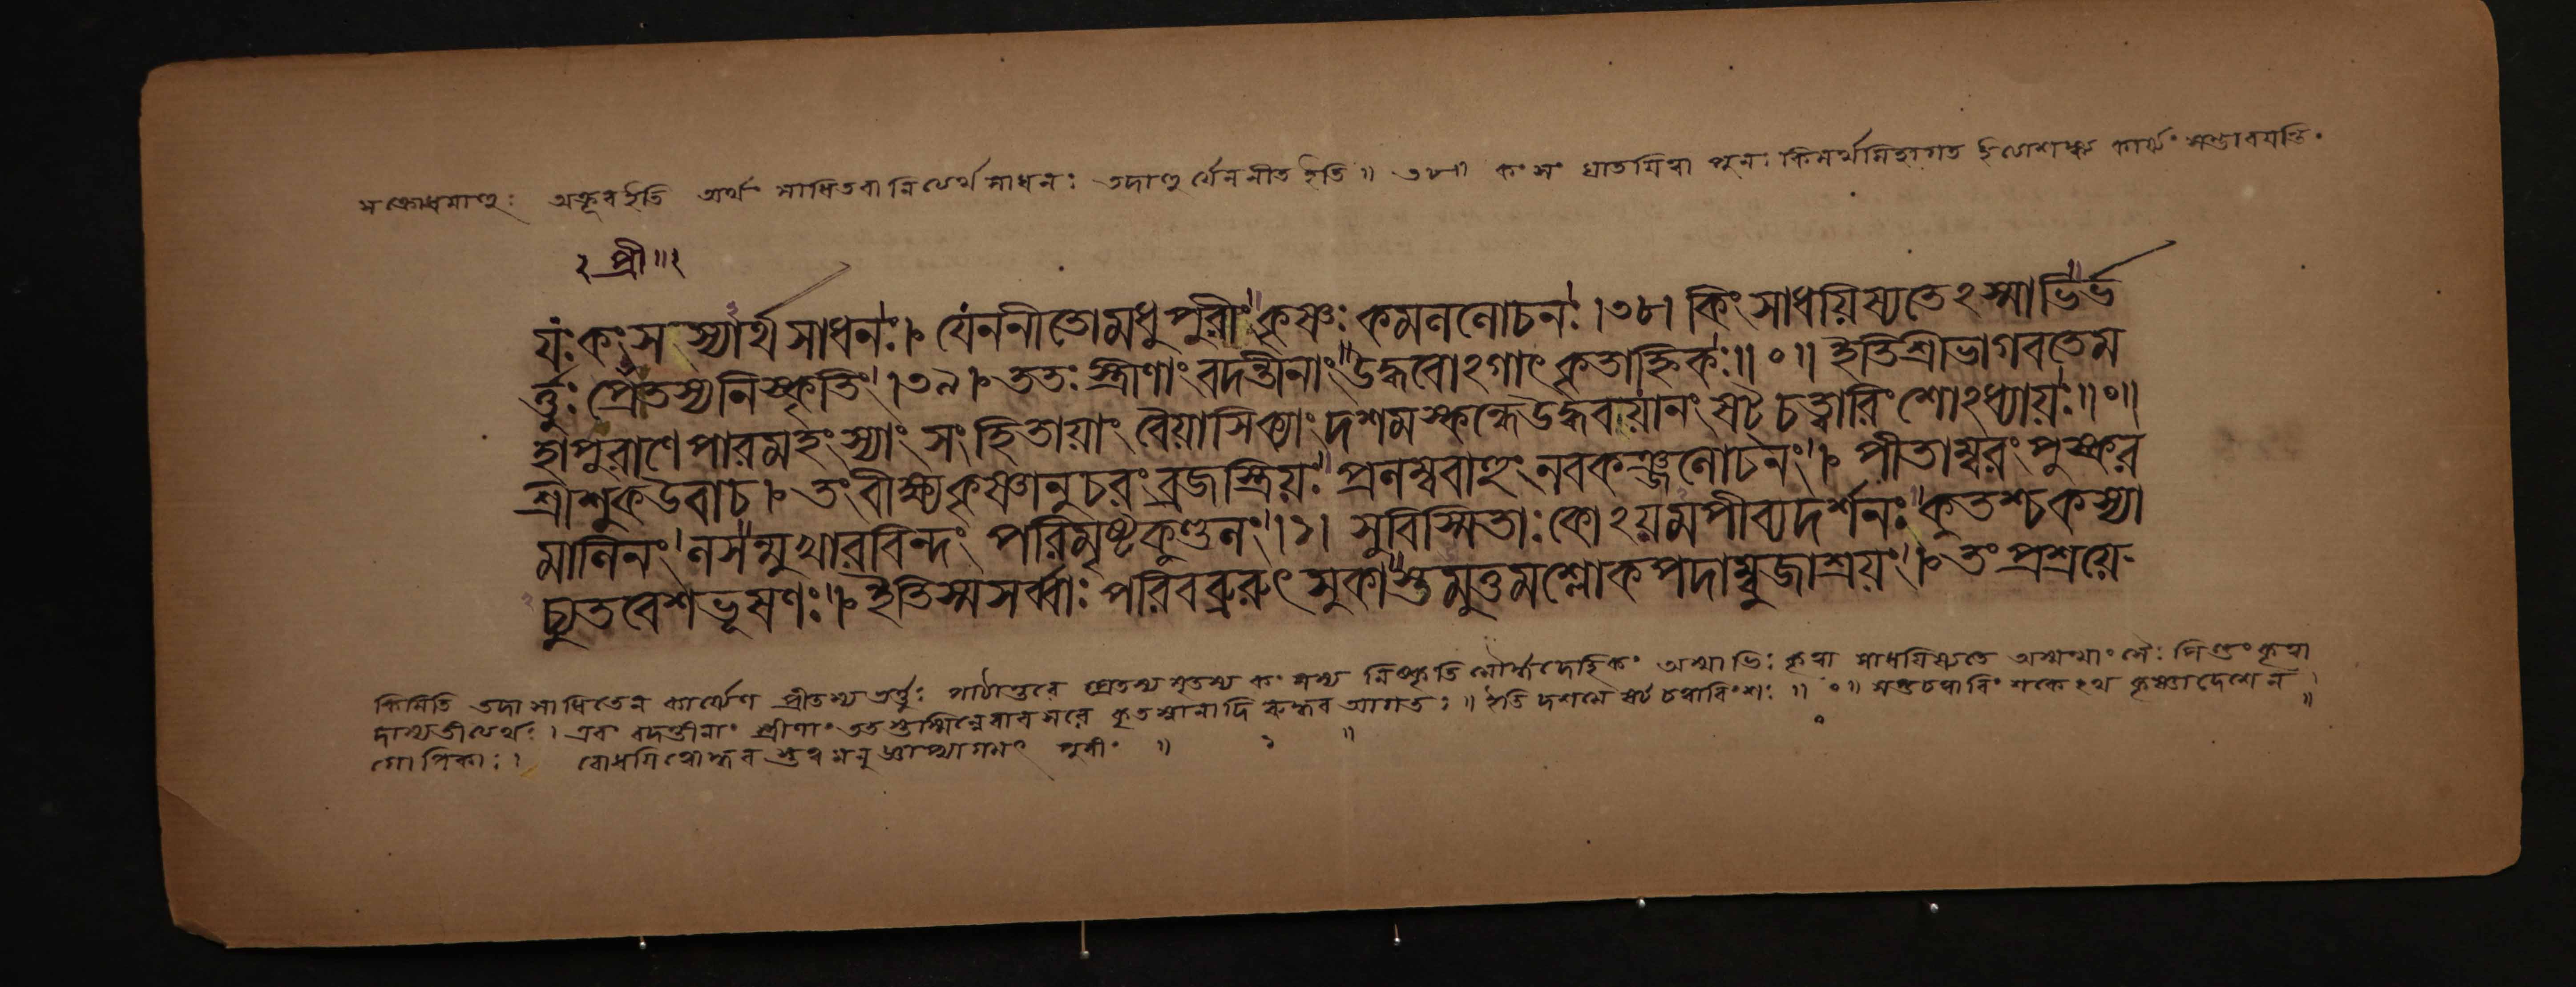 সক্রোধমাহুঃ অক্রূরইতি অর্থং সাধিতবানিত্যর্থসাধনঃ তদাহুর্যেননীতইতি॥ ৩৮॥ কংসং ঘাতয়িত্বা পুনঃ কিমর্থমিহাগত ইত্যাশঙ্ক্য কার্য্যং সম্ভাবয়ন্তি
২ প্রী॥১
যঃকংসস্যার্থসাধনঃ। যেননীতোমধুপুরীং কৃষ্ণঃ কমললোচনঃ।৩৮। কিং সাধয়িষ্যতেঽস্মাভির্ভ
র্ত্তুঃ প্রেতস্যনিষ্কৃতিং।৩৯। ততঃ স্ত্রীণাং বদন্তীনাং উদ্ধবোঽগাৎ কৃতাহ্নিকঃ॥॰॥ ইতিশ্রীভাগবতেম
হাপুরাণেপারমহংস্যাং সংহিতায়াং বৈয়াসিক্যাং দশমস্কন্ধেউদ্ধবযানং ষট্চত্বারিংশোঽধ্যায়ঃ॥॰॥
শ্রীশুকউবাচ। তংবীক্ষ্যকৃষ্ণানুচরংব্রজস্ত্রিয়ঃ প্রলম্ববাহুংনবকঞ্জলোচনং। পীতাম্বরংপুষ্কর
মালিনং লসন্মুখারবিন্দং পরিমৃষ্টকুণ্ডলং।১। সুবিস্মিতাঃকোঽয়মপীব্যদর্শনঃ কুতশ্চকস্যা
চ্যুতবেশভূষণঃ। ইতিস্মসর্ব্বাঃ পরিবব্রুরুৎসুকাস্তমুত্তমশ্লোকপদাম্বুজাশ্রয়ং। তংপ্রশ্রয়ে-
কিমিতি তদা সাধিতেন কার্য্যেণ প্রীতস্য ভর্ত্তুঃ পাঠান্তরে প্রেতস্য মৃতস্য কংসস্য নিষ্কৃতিমৌর্দ্ধদেহিকং অস্মাভিঃ কৃত্বা সাধয়িষ্যতে অস্মন্মাংসৈঃ পিণ্ডং কৃত্বা
দাস্যতীত্যর্থঃ। এবং বদন্তীনাং স্ত্রীণাং ততস্তস্মিন্নেবাবসরে কৃতস্নানাদি উদ্ধব আগতঃ॥ ইতি দশমে ষট্চত্বারিংশঃ॥ ॰॥ সপ্তচত্বারিংশকেঽথ কৃষ্ণাদেশেন
গোপিকাঃ। বোধয়িত্বোদ্ধবস্তত্রমনুজ্ঞাপ্যাগমৎ পুরীং॥ ১ ॥